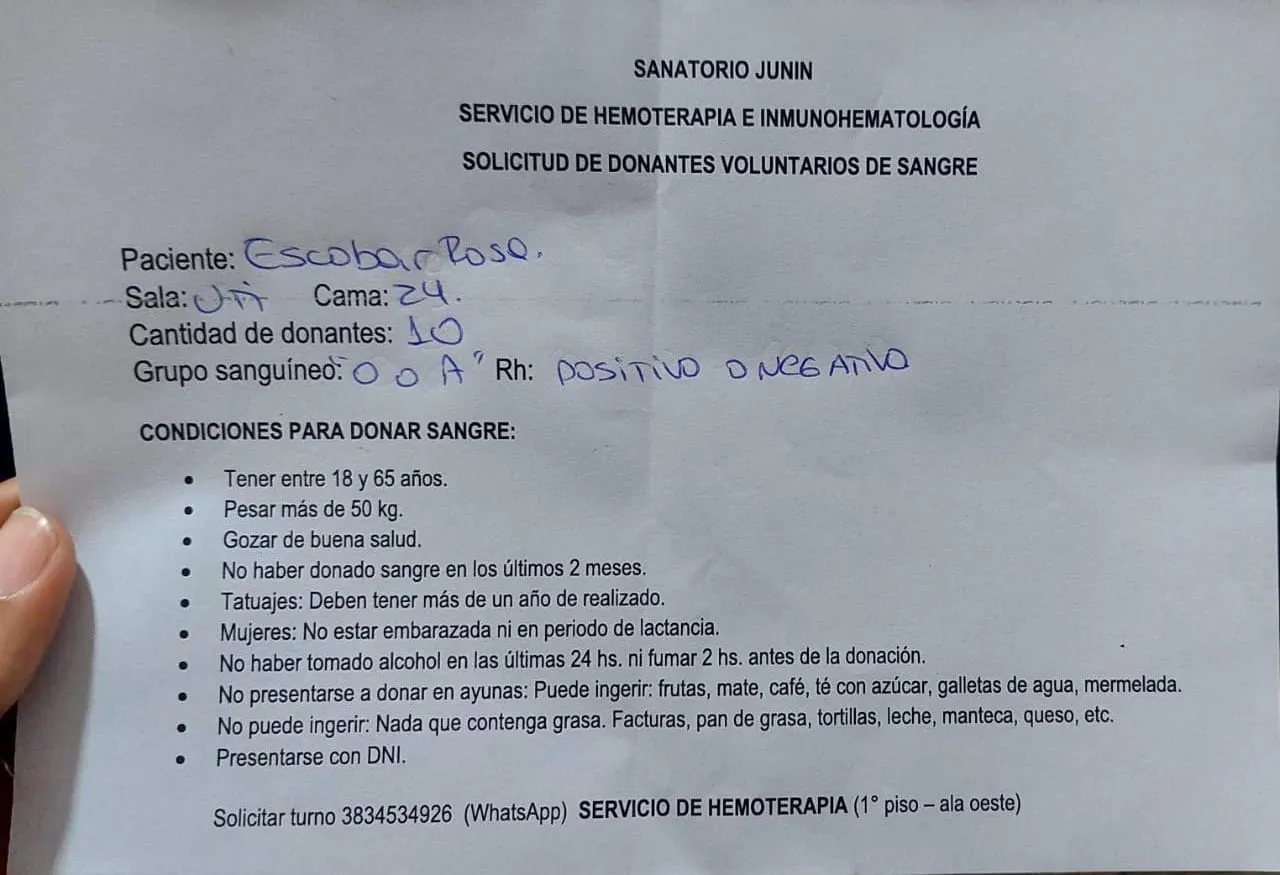 SANATORIO JUNIN
SERVICIO DE HEMOTERAPIA E INMUNOHEMATOLOGÍA
SOLICITUD DE DONANTES VOLUNTARIOS DE SANGRE
Paciente: Escobar Rosa.
Sala: UTI Cama: 24.
Cantidad de donantes: 10
Grupo sanguíneo: "O o A" Rh: POSITIVO O NEGATIVO
CONDICIONES PARA DONAR SANGRE:
• Tener entre 18 y 65 años.
• Pesar más de 50 kg.
• Gozar de buena salud.
• No haber donado sangre en los últimos 2 meses.
• Tatuajes: Deben tener más de un año de realizado.
• Mujeres: No estar embarazada ni en periodo de lactancia.
• No haber tomado alcohol en las últimas 24 hs. ni fumar 2 hs. antes de la donación.
• No presentarse a donar en ayunas: Puede ingerir: frutas, mate, café, té con azúcar, galletas de agua, mermelada.
• No puede ingerir: Nada que contenga grasa. Facturas, pan de grasa, tortillas, leche, manteca, queso, etc.
• Presentarse con DNI.
Solicitar turno 3834534926 (WhatsApp) SERVICIO DE HEMOTERAPIA (1° piso – ala oeste)